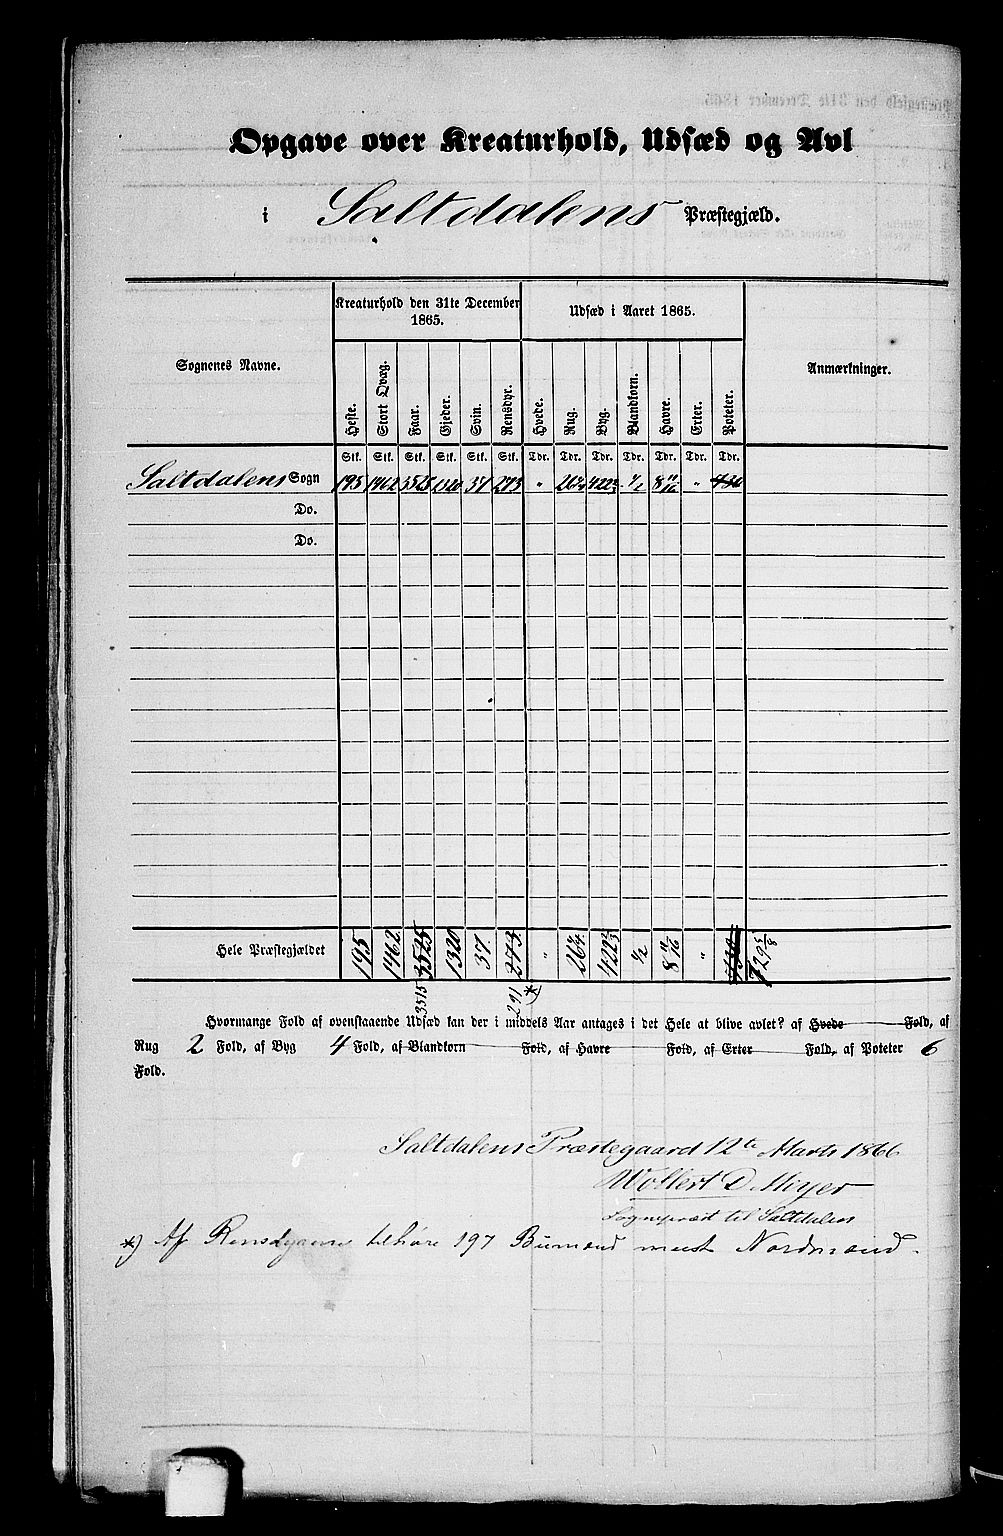 Opgave over Kreaturhold, Udsæd og Avl
i Saltdalens Præstegjæld.
Sognenes Navne.
Kreaturhold den 31te December 1865.
Udsæd i Aaret 1865.
Anmærkninger.
Heste. Stort Qvæg. Faar. Gjeder. Svin. Rensdyr. Hvede. Rug. Byg. Blandkorn. Havre. Erter. Poteter.
Stk. Stk. Stk. Stk. Stk. Stk. Tdr. Tdr. Tdr. Tdr. Tdr. Tdr. Tdr.
Saltdalens Sogn 195 1462 3525 1320 37 273 " 26 2/4 422 2/3 1/2 8 11/16 " 730
Do.
Do.
Hele Præstegjældet 195 1462 3525 1320 37 273 " 26 2/4 422 2/3 1/2 8 11/16 " 730 729 5/8
3515 291 *)
Hvormange Fold af ovenstaaende Udsæd kan der i middels Aar antages i det Hele at blive avlet? af Hvede Fold, af
Rug 2 Fold, af Byg 4 Fold, af Blandkorn Fold, af Havre Fold, af Erter Fold, af Poteter 6
Fold.
Saltdalens Præstegaard 12te Marts 1866
Wollert D. Meyer
Sognepræst til Saltdalen
*) Af Rensdyrene tilhøre 197 Bumænd mest Nordmænd.